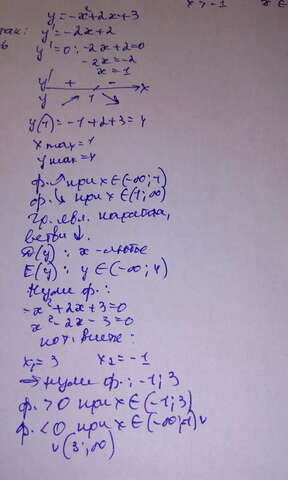 x > -1 x ∈
так: y = -x²+2x+3
y' = -2x+2
y' = 0: -2x+2=0
-2x=-2
x=1
y' + -
y 1 x
y(1) = -1+2+3=4
x max = 1
y max = 4
ф. ↗ при x ∈ (-∞; 1)
ф. ↘ при x ∈ (1; ∞)
гр. явл. парабола,
ветви ↓.
D(y): x - любое
E(y): y ∈ (-∞; 4)
Нули ф.:
-x²+2x+3=0
x²-2x-3=0
по т. Виета:
x₁=3 x₂=-1
⇒ нули ф.: -1; 3
ф. >0 при x ∈ (-1; 3)
ф. <0 при x ∈ (-∞; -1) ∪
∪ (3; ∞)